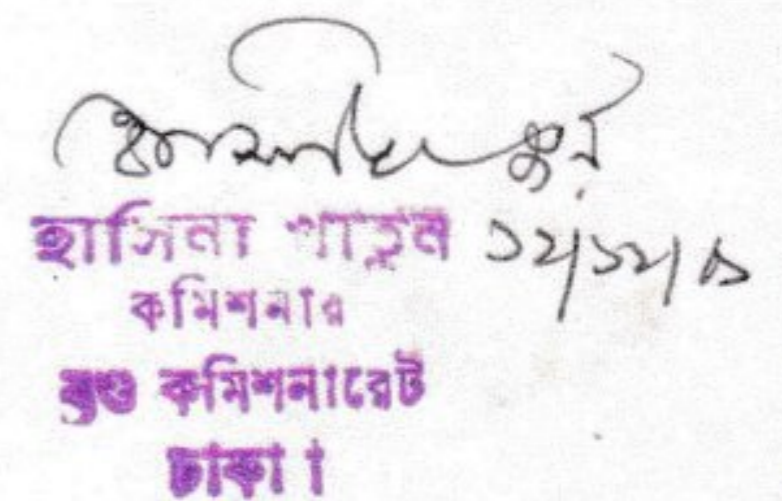 হাসিনা খাতুন
১২/১২/
কমিশনার
বণ্ড কমিশনারেট
ঢাকা।